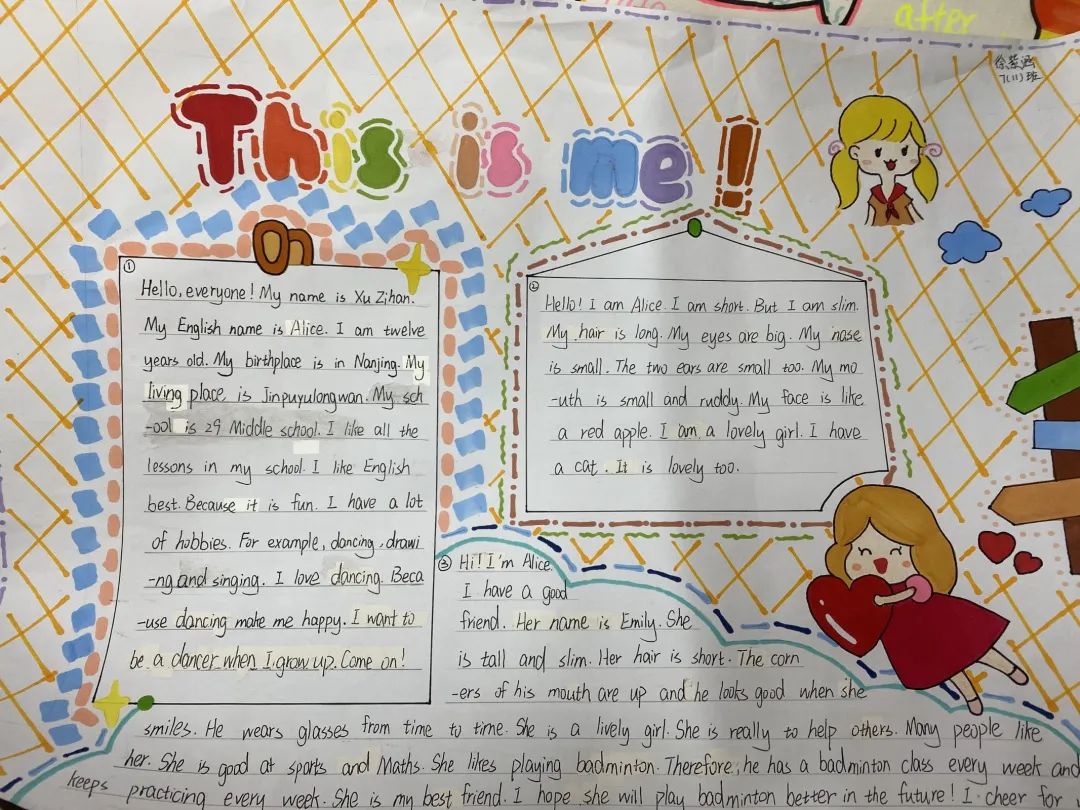 after
徐紫涵
7(11)班
This is me!
①
Hello, everyone! My name is Xu Zihan.
My English name is Alice. I am twelve
years old. My birthplace is in Nanjing. My
living place is Jinpuyulongwan. My sch
-ool is 29 Middle school. I like all the
lessons in my school. I like English
best. Because it is fun. I have a lot
of hobbies. For example, dancing, drawi
-ng and singing. I love dancing. Beca
-use dancing make me happy. I want to
be a dancer when I grow up. Come on!
②
Hello! I am Alice. I am short. But I am slim.
My hair is long. My eyes are big. My nose
is small. The two ears are small too. My mo
-uth is small and ruddy. My face is like
a red apple. I am a lovely girl. I have
a cat. It is lovely too.
③ Hi! I'm Alice
I have a good
friend. Her name is Emily. She
is tall and slim. Her hair is short. The corn
-ers of his mouth are up and he looks good when she
smiles. He wears glasses from time to time. She is a lively girl. She is really to help others. Many people like
her. She is good at sports and Maths. She likes playing badminton. Therefore, he has a badminton class every week and
keeps practicing every week. She is my best friend. I hope she will play badminton better in the future! I cheer for